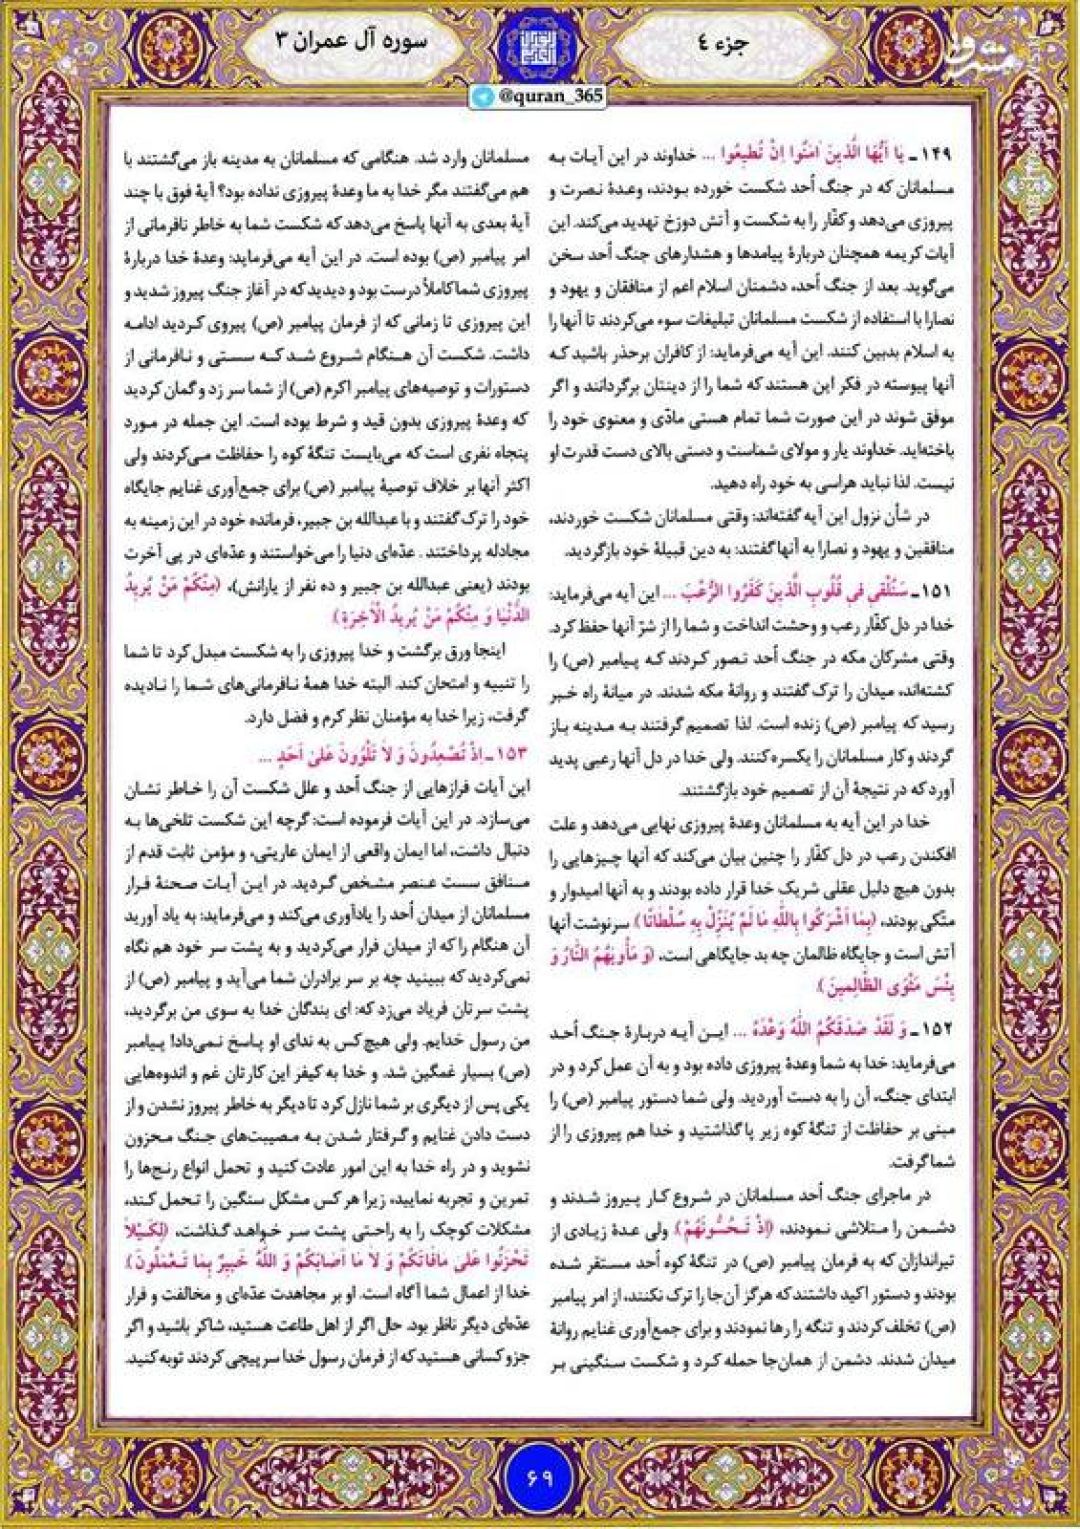 جزء ٤
سوره آل عمران ٣
@quran_365
مشرق
۱۴۹ـ یا اَیُّهَا الَّذینَ آمَنُوا اِنْ تُطیعُوا ... خداوند در این آیات به
مسلمانان که در جنگ اُحد شکست خورده بودند، وعدهٔ نصرت و
پیروزی می‌دهد و کفّار را به شکست و آتش دوزخ تهدید می‌کند. این
آیات کریمه همچنان دربارهٔ پیامدها و هشدارهای جنگ اُحد سخن
می‌گوید. بعد از جنگ اُحد، دشمنان اسلام اعم از منافقان و یهود و
نصارا با استفاده از شکست مسلمانان تبلیغات سوء می‌کردند تا آنها را
به اسلام بدبین کنند. این آیه می‌فرماید: از کافران برحذر باشید که
آنها پیوسته در فکر این هستند که شما را از دینتان برگردانند و اگر
موفق شوند در این صورت شما تمام هستی مادّی و معنوی خود را
باخته‌اید. خداوند یار و مولای شماست و دستی بالای دست قدرت او
نیست. لذا نباید هراسی به خود راه دهید.
در شأن نزول این آیه گفته‌اند: وقتی مسلمانان شکست خوردند،
منافقین و یهود و نصارا به آنها گفتند: به دین قبیلهٔ خود بازگردید.
۱۵۱ـ سَنُلْقی فی قُلُوبِ الَّذینَ کَفَرُوا الرُّعْبَ ... این آیه می‌فرماید:
خدا در دل کفّار رعب و وحشت انداخت و شما را از شرّ آنها حفظ کرد.
وقتی مشرکان مکه در جنگ اُحد تصور کردند که پیامبر (ص) را
کشته‌اند، میدان را ترک گفتند و روانهٔ مکه شدند. در میانهٔ راه خبر
رسید که پیامبر (ص) زنده است. لذا تصمیم گرفتند به مدینه باز
گردند و کار مسلمانان را یکسره کنند. ولی خدا در دل آنها رعبی پدید
آورد که در نتیجهٔ آن از تصمیم خود بازگشتند.
خدا در این آیه به مسلمانان وعدهٔ پیروزی نهایی می‌دهد و علت
افکندن رعب در دل کفّار را چنین بیان می‌کند که آنها چیزهایی را
بدون هیچ دلیل عقلی شریک خدا قرار داده بودند و به آنها امیدوار و
متّکی بودند، (بِما اَشْرَکُوا بِاللّهِ ما لَمْ یُنَزِّلْ بِهِ سُلْطانًا) سرنوشت آنها
آتش است و جایگاه ظالمان چه بد جایگاهی است، (وَ مَأْویهُمُ النّارُ وَ
بِئْسَ مَثْوَی الظّالِمینَ)
۱۵۲ـ وَ لَقَدْ صَدَقَکُمُ اللّهُ وَعْدَهُ ... این آیه دربارهٔ جنگ اُحد
می‌فرماید: خدا به شما وعدهٔ پیروزی داده بود و به آن عمل کرد و در
ابتدای جنگ، آن را به دست آوردید. ولی شما دستور پیامبر (ص) را
مبنی بر حفاظت از تنگهٔ کوه زیر پا گذاشتید و خدا هم پیروزی را از
شما گرفت.
در ماجرای جنگ اُحد مسلمانان در شروع کار پیروز شدند و
دشمن را متلاشی نمودند، (اِذْ تَحُسُّونَهُمْ) ولی عدهٔ زیادی از
تیراندازان که به فرمان پیامبر (ص) در تنگهٔ کوه اُحد مستقر شده
بودند و دستور اکید داشتند که هرگز آن‌جا را ترک نکنند، از امر پیامبر
(ص) تخلف کردند و تنگه را رها نمودند و برای جمع‌آوری غنایم روانهٔ
میدان شدند. دشمن از همان‌جا حمله کرد و شکست سنگینی بر
مسلمانان وارد شد. هنگامی که مسلمانان به مدینه باز می‌گشتند با
هم می‌گفتند مگر خدا به ما وعدهٔ پیروزی نداده بود؟ آیهٔ فوق با چند
آیهٔ بعدی به آنها پاسخ می‌دهد که شکست شما به خاطر نافرمانی از
امر پیامبر (ص) بوده است. در این آیه می‌فرماید: وعدهٔ خدا دربارهٔ
پیروزی شما کاملاً درست بود و دیدید که در آغاز جنگ پیروز شدید و
این پیروزی تا زمانی که از فرمان پیامبر (ص) پیروی کردید ادامه
داشت. شکست آن هنگام شروع شد که سستی و نافرمانی از
دستورات و توصیه‌های پیامبر اکرم (ص) از شما سر زد و گمان کردید
که وعدهٔ پیروزی بدون قید و شرط بوده است. این جمله در مورد
پنجاه نفری است که می‌بایست تنگهٔ کوه را حفاظت می‌کردند ولی
اکثر آنها بر خلاف توصیهٔ پیامبر (ص) برای جمع‌آوری غنایم جایگاه
خود را ترک گفتند و با عبدالله بن جبیر، فرمانده خود در این زمینه به
مجادله پرداختند . عدّه‌ای دنیا را می‌خواستند و عدّه‌ای در پی آخرت
بودند (یعنی عبدالله بن جبیر و ده نفر از یارانش)، (مِنْکُمْ مَنْ یُریدُ
الدُّنْیا وَ مِنْکُمْ مَنْ یُریدُ الْآخِرَةِ)
اینجا ورق برگشت و خدا پیروزی را به شکست مبدل کرد تا شما
را تنبیه و امتحان کند. البته خدا همهٔ نافرمانی‌های شما را نادیده
گرفت، زیرا خدا به مؤمنان نظر کرم و فضل دارد.
۱۵۳ـ اِذْ تُصْعِدُونَ وَ لا تَلْوُونَ عَلی اَحَدٍ ...
این آیات فرازهایی از جنگ اُحد و علل شکست آن را خاطر نشان
می‌سازد. در این آیات فرموده است: گرچه این شکست تلخی‌ها به
دنبال داشت، اما ایمان واقعی از ایمان عاریتی، و مؤمن ثابت قدم از
منافق سست عنصر مشخص گردید. در این آیات صحنهٔ فرار
مسلمانان از میدان اُحد را یادآوری می‌کند و می‌فرماید: به یاد آورید
آن هنگام را که از میدان فرار می‌کردید و به پشت سر خود هم نگاه
نمی‌کردید که ببینید چه بر سر برادران شما می‌آید و پیامبر (ص) از
پشت سرتان فریاد می‌زد که: ای بندگان خدا به سوی من برگردید،
من رسول خدایم. ولی هیچ کس به ندای او پاسخ نمی‌داد! پیامبر
(ص) بسیار غمگین شد. و خدا به کیفر این کارتان غم و اندوه‌هایی
یکی پس از دیگری بر شما نازل کرد تا دیگر به خاطر پیروز نشدن و از
دست دادن غنایم و گرفتار شدن به مصیبت‌های جنگ محزون
نشوید و در راه خدا به این امور عادت کنید و تحمل انواع رنج‌ها را
تمرین و تجربه نمایید، زیرا هر کس مشکل سنگین را تحمل کند،
مشکلات کوچک را به راحتی پشت سر خواهد گذاشت، (لِکَیْلا
تَحْزَنُوا عَلی مافاتَکُمْ وَ لا ما اَصابَکُمْ وَ اللّهُ خَبیرٌ بِما تَعْمَلُونَ)
خدا از اعمال شما آگاه است. او بر مجاهدت عدّه‌ای و مخالفت و فرار
عدّه‌ای دیگر ناظر بود. حال اگر از اهل طاعت هستید، شاکر باشید و اگر
جزو کسانی هستید که از فرمان رسول خدا سرپیچی کردند توبه کنید.
۶۹